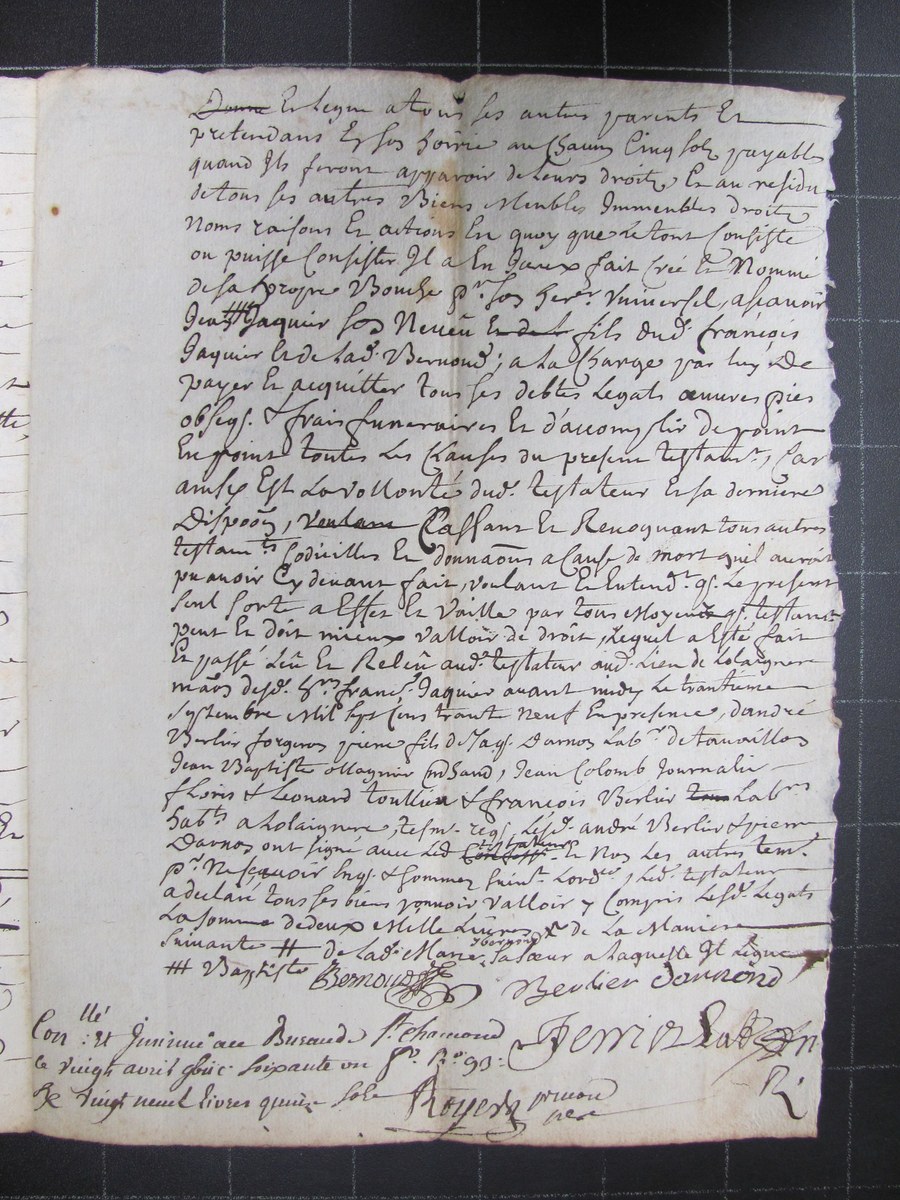 Donne Et Legue a tous ses autres parents Et
pretendans En son hoirie au Chacun Cinq solz payable
quand Ils feront apparoir de Leurs droits Et au residu
de tous ses autres Biens Meubles Immeubles droits
Noms raisons Et actions En quoy que Le tout Consiste
ou puisse Consister Il a En Iceux fait créé Et Nommé
de sa propre Bouche pr. son herer. Vniversel, ascavoir
Jean # Jaquier son Neveu Et de L fils dud. françois
Jaquier Et de Lad. Bernoud; a La Charge par luy De
payer Et acquitter tous ses debtes Legats œuvres pies
obseq. & frais funeraires Et d'accomplir de point
En point toutes Les Clauses du present testamt., Car
ainsy Est La vollonté dud. testateur Et sa derniere
Dispoõn, Voulant Cassant Et Revoquant tous autres
testamts Codicilles Et donnaõns a Cause de mort quil auroit
pu avoir Cy devant fait, voulant Et Entendt. q. Le present
seul sorte a Effet Et Vaille par tous Moyens q. testamt
peut Et doit mieux valloir de droit, Lequel a Esté fait
Et passé Leû Et Releû aud. testateur aud. Lieu de Lolaignere
maõn desd. Sr. franc. Jaquier avant midy Le trantieme
septembre Mil sept Cens trante neuf En presence, d'andré
Berlier forgeron jeune fils de Jaq. Darnon Labr. de tavaillon
Jean Baptiste ollagnier mchand, Jean Colomb Journalier
floris & Leonard toullieu & françois Berlier Labrs
habts. a Lolaignere, tesm. req. Lesd. andré Berlier & pierre
Darnon ont signé avec Led. testateur Et Non Les autres tem.
pr. Ne scavoir Enq. & sommez suivt. Lordce, Led. testateur
a declaré tous ses biens pouvoir valloir y Compris Lesd. Legats
La somme de deux Mille Livres de La Maniere
suivante # de Lad. Marie, bernoud sa sœur a Laquelle Il Legue
# Baptiste Bernoud Berlier darnond
Conllé : Et Insinué au Bureau St. chamond
ce vingt avril gbiic soixante un fo. Ro. 93:
Re vingt neuf livres quinze sols
Royer
R.